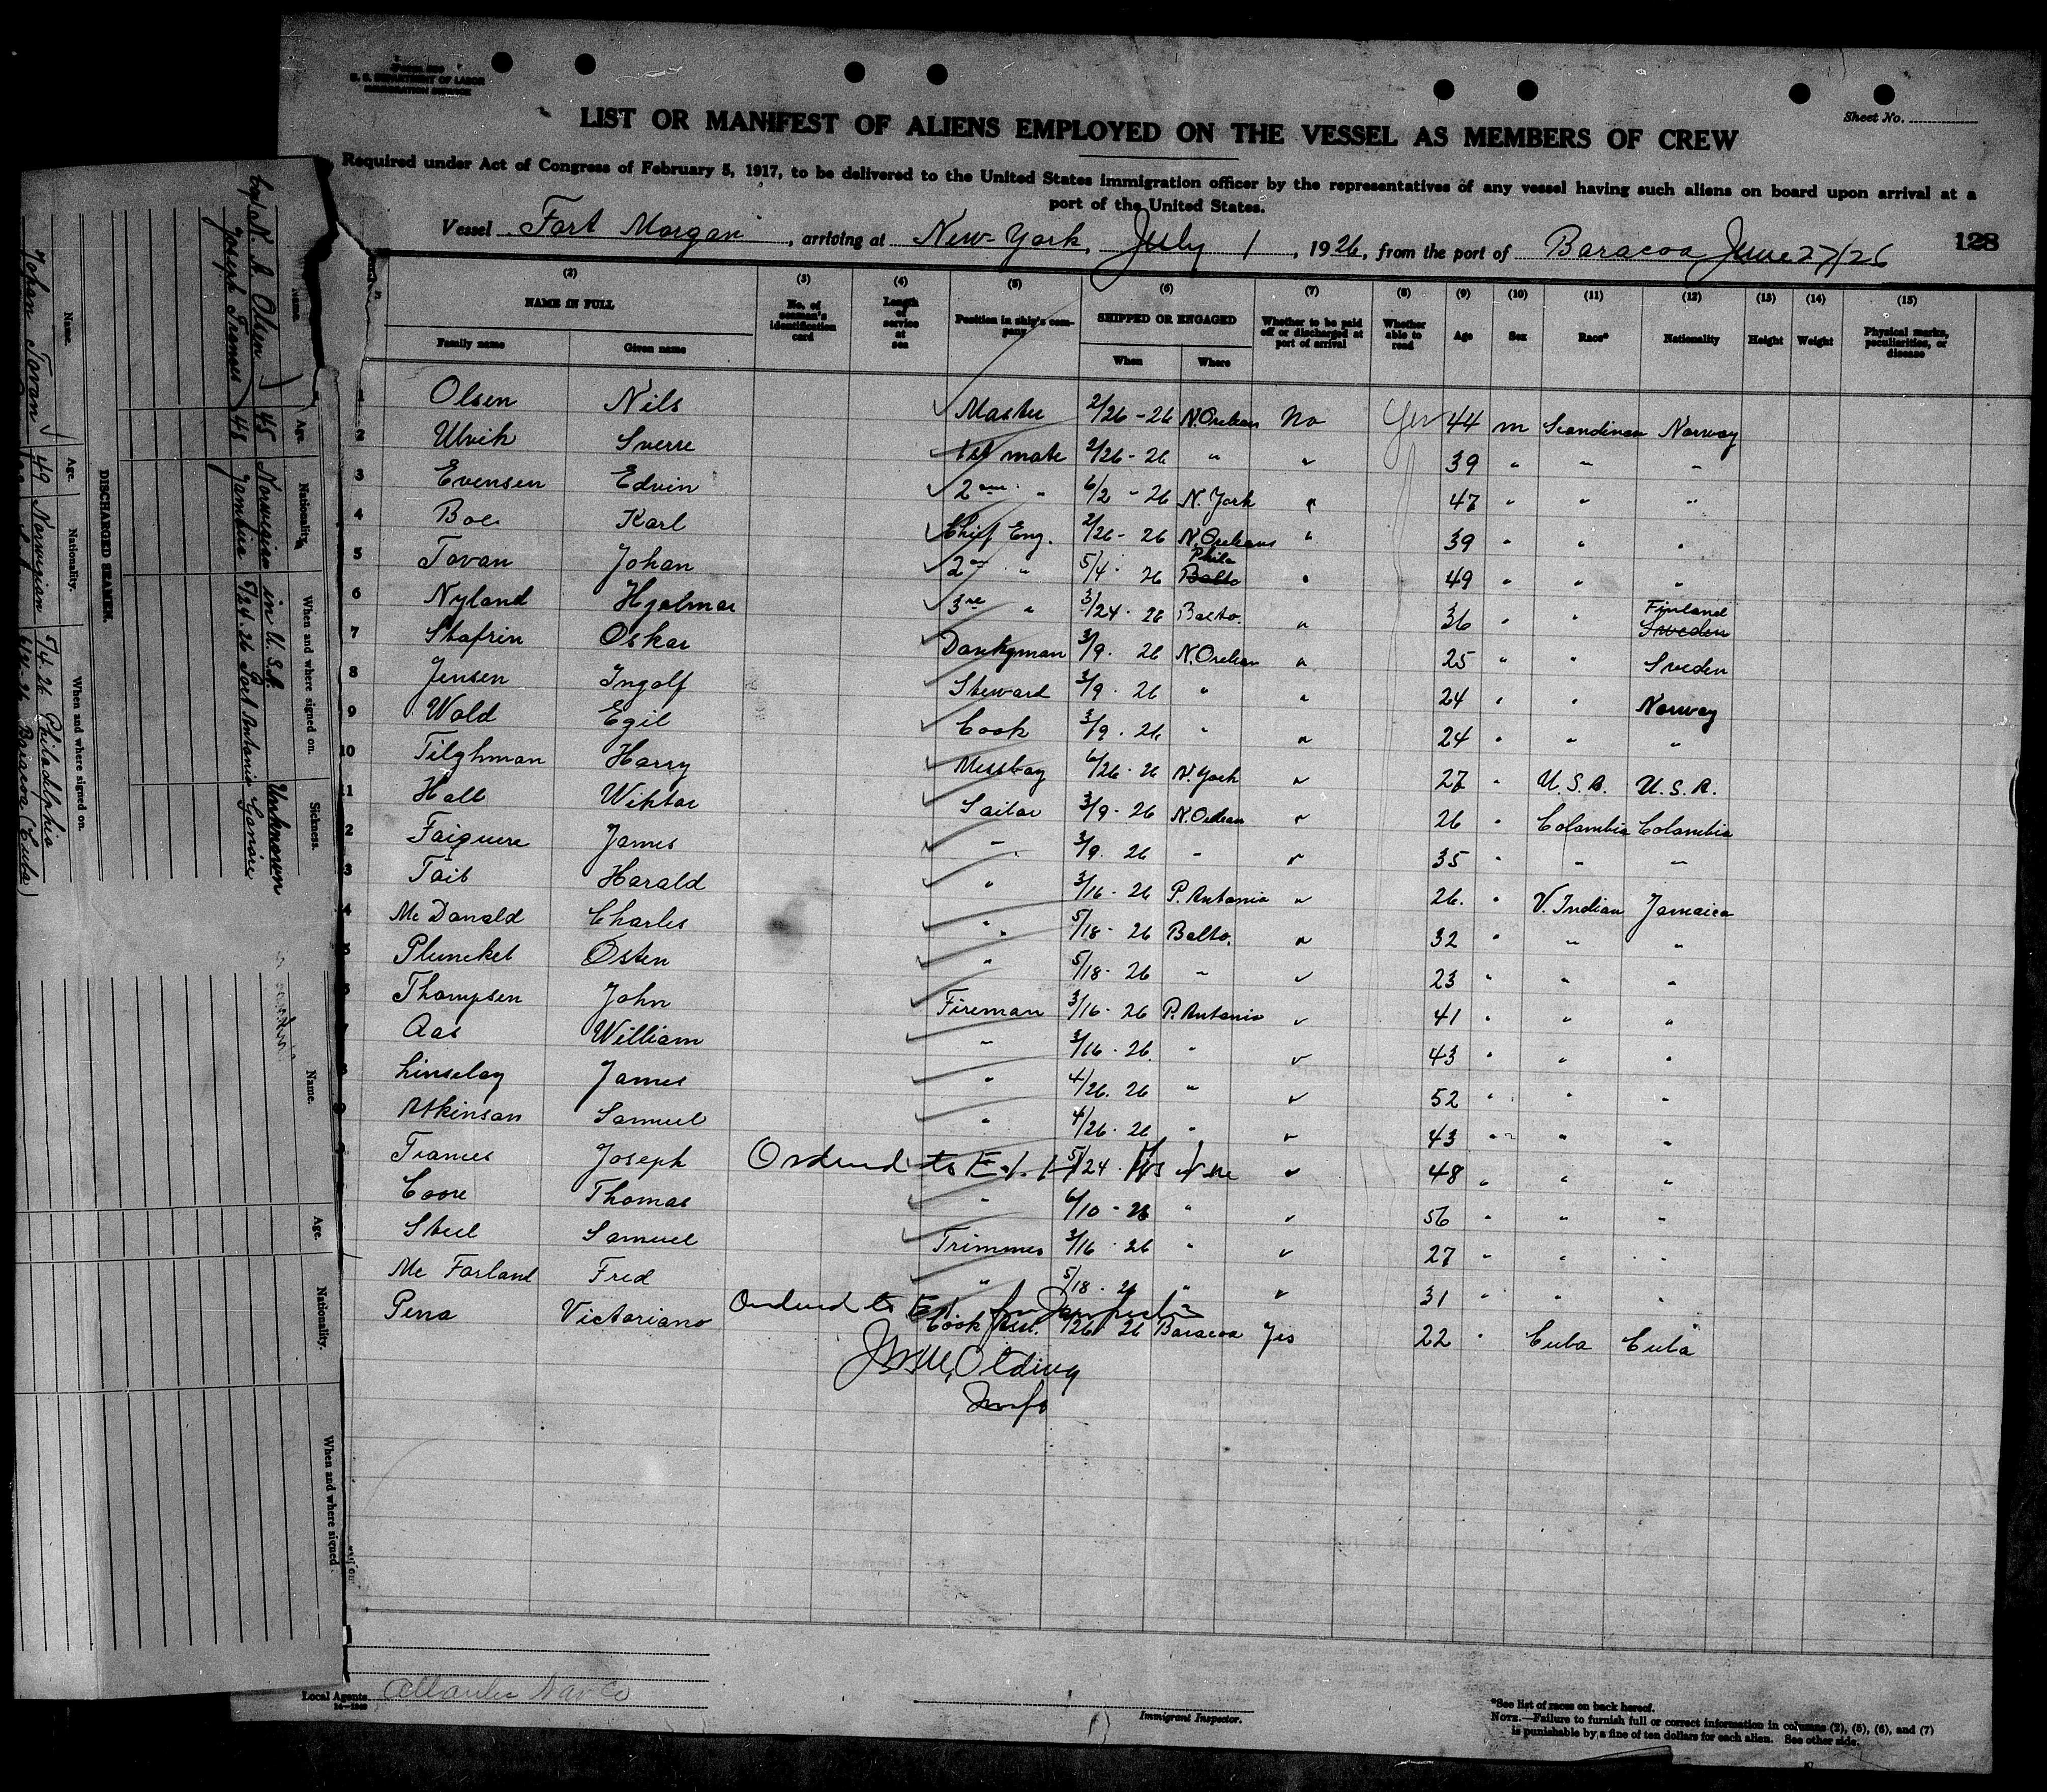 U. S. DEPARTMENT OF LABOR
IMMIGRATION SERVICE
Sheet No.
LIST OR MANIFEST OF ALIENS EMPLOYED ON THE VESSEL AS MEMBERS OF CREW
Required under Act of Congress of February 5, 1917, to be delivered to the United States immigration officer by the representatives of any vessel having such aliens on board upon arrival at a
port of the United States.
Vessel Fort Morgan, arriving at New-York, July 1, 1926, from the port of Baracoa June 27/26
128
(2) (3) (4) (5) (6) (7) (8) (9) (10) (11) (12) (13) (14) (15)
NAME IN FULL No. of seaman's identification card Length of service at sea Position in ship's company SHIPPED OR ENGAGED Whether to be paid off or discharged at port of arrival Whether able to read Age Sex Race* Nationality Height Weight Physical marks, peculiarities, or disease
Family name Given name When Where
1 Olsen Nils Master 2/26-26 N.Orleans No Yes 44 m Scandinav Norway
2 Ulvik Sverre 1st mate 2/26-26 " " 39 " " "
3 Evensen Edvin 2 " 6/2-26 N. York " 47 " " "
4 Boe Karl Chief Eng. 2/26-26 N.Orleans " 39 " " "
5 Tovan Johan 2 " 5/4-26 Phila Balto " 49 " " "
6 Nyland Hjalmar 3re " 3/24-26 Balto. " 36 " " Finland Sweden
7 Stafrin Oskar Donkyman 3/9. 26 N.Orlean " 25 " " Sveden
8 Jensen Ingolf Steward 3/9. 26 " " 24 " " Norway
9 Wold Egil Cook 3/9. 26 " " 24 " " "
10 Tilghman Harry Messboy 6/26-26 N.York " 27 " U.S.A. U.S.A.
11 Hall Wiktor Sailor 3/9-26 N.Orlean " 26 " Colombia Colombia
2 Faiquere James " 3/9. 26 " " 35 " " "
3 Tait Harald " 3/16-26 P. Antonio " 26. " V. Indian Jamaica
4 Mc Donald Charles " 5/18-26 Balto. " 32 " " "
5 Pluncket Osten " 5/18-26 " " 23 " " "
Thompsen John Fireman 3/16-26 P. Antonio " 41 " " "
7 Aas William " 3/16-26. " " 43 " " "
Linselay James " 4/26. 26 " " 52 " " "
Atkinson Samuel " 4/26-26 " " 43 " " "
Frances Joseph Ordered to E.I. 5/24 " 48 " " "
Coore Thomas " 6/10-26 " " 56 " " "
Steel Samuel Trimmer 3/16-26 " " 27 " " "
Mc Farland Fred " 5/18-26 " " 31 " " "
Ordered to E.I. for
Pena Victoriano Cook /26-26 Baracoa Yes 22 " Cuba Cuba
Local Agents Atlantic Nav Co
14—1240
Immigrant Inspector.
*See list of races on back hereof.
NOTE.—Failure to furnish full or correct information in columns (2), (5), (6), and (7)
is punishable by a fine of ten dollars for each alien. See other side.
Name. Age. Nationality. When and where signed on. Sickness.
N. A. Olsen 45 Norwegian in U.S.A. Unknown
Joseph Frances 48 Jamaica 5/24.26 Port Antonio
Name. Age. Nationality. When and where signed
DISCHARGED SEAMEN.
Name. Age. Nationality. When and where signed on.
Johan Tovan 49 Norwegian 5/4-26 Philadelphia
Baracoa (Cuba)